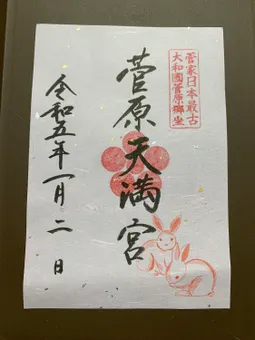 菅家日本最古
大和國菅原郷坐
菅原天満宮
令和五年一月二日